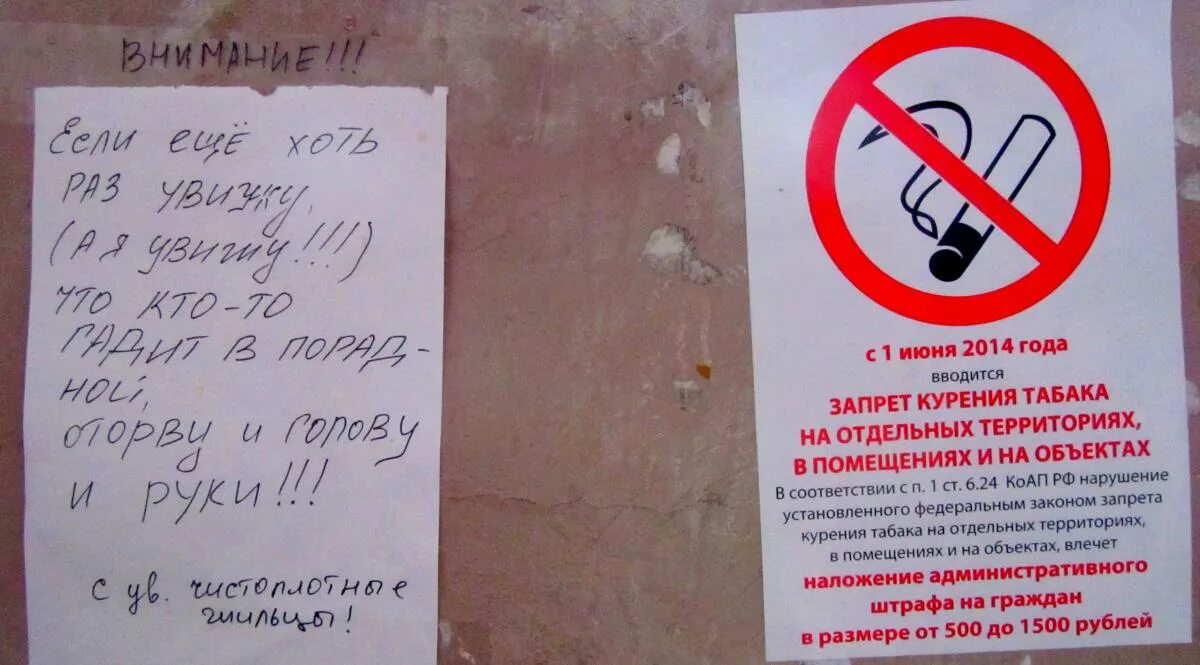 ВНИМАНИЕ!!!
Если ещё хоть
раз увижу,
(А я увижу!!!)
что кто-то
гадит в порад-
ной,
оторву и голову
и руки!!!
с ув. чистоплотные
жильцы!
с 1 июня 2014 года
вводится
ЗАПРЕТ КУРЕНИЯ ТАБАКА
НА ОТДЕЛЬНЫХ ТЕРРИТОРИЯХ,
В ПОМЕЩЕНИЯХ И НА ОБЪЕКТАХ
В соответствии с п. 1 ст. 6.24 КоАП РФ нарушение
установленного федеральным законом запрета
курения табака на отдельных территориях,
в помещениях и на объектах, влечет
наложение административного
штрафа на граждан
в размере от 500 до 1500 рублей